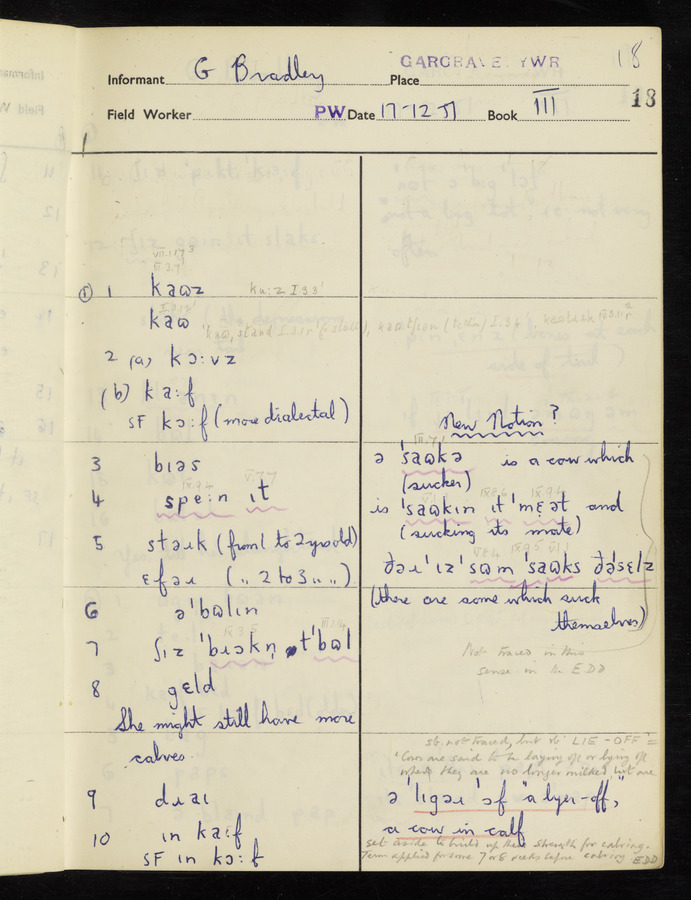 GARGRAVE. YWR 18
Informant G Bradley Place
18
Field Worker PW Date 17-12-51 Book III
VII.1.17
III.3.7
① 1 kaʊz ku:z I 3 3'
kaʊ
2 (a) kɔ:vz
(b) ka:f
SF kɔ:f (more dialectal)
3 bɪəs
4 speɪn ɪt
5 stəɪk (from 1 to 2 yrs old)
ɛfəɪ ( „ 2 to 3 „ „ )
6 ə'bʊlɪn
7 ʃɪz 'bɪəkn̩ t'bʊl
8 gɛld
She might still have more
calves.
9 dɹaɪ
10 ɪn ka:f
SF ɪn kɔ:f
New Notion?
ə 'saʊkə is a cow which
(sucker)
is 'saʊkɪn ɪt 'mɛət and
(sucking its mate)
ðəɪ 'ɪz 'sʊm 'saʊks ðə'sɛlz
(there are some which suck
themselves)
Not traced in this
sense in the EDD
sb. not traced, but vb. LIE-OFF =
'Cows are said to be laying off or lying off
when they are no longer milked but are
ə 'lɪgəɪ 'ɔf "a lyer-off,"
a cow in calf
set aside to build up their strength for calving.
Term applied for some 7 or 8 weeks before calving EDD